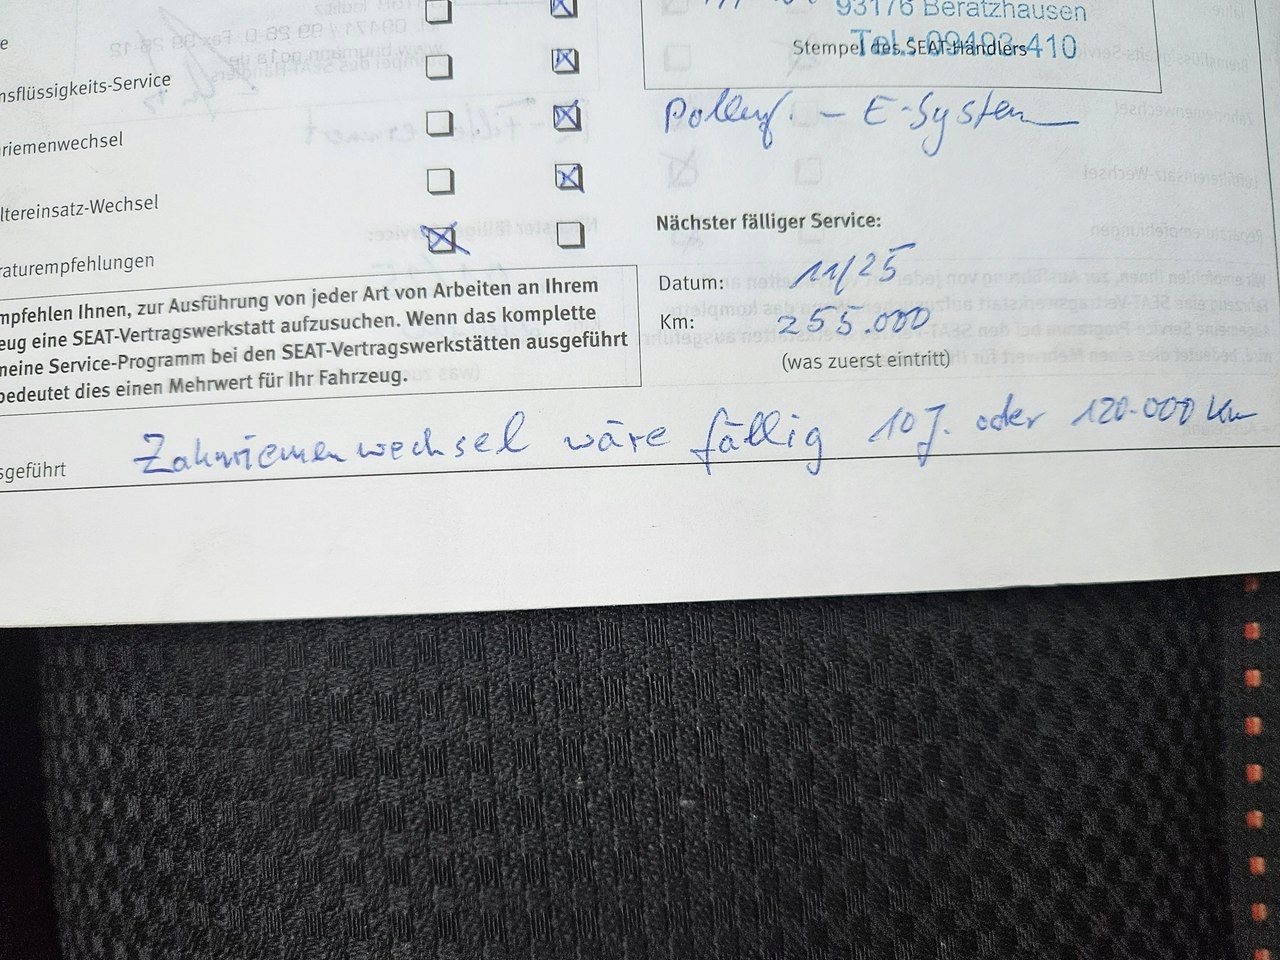 93176 Beratzhausen
Tel.: 09493-410
Stempel des SEAT-Händlers
nsflüssigkeits-Service
riemenwechsel
ltereinsatz-Wechsel
raturempfehlungen
Pollenf. - E-System
Nächster fälliger Service:
Datum: 11/25
Km: 255.000
(was zuerst eintritt)
mpfehlen Ihnen, zur Ausführung von jeder Art von Arbeiten an Ihrem
eug eine SEAT-Vertragswerkstatt aufzusuchen. Wenn das komplette
neine Service-Programm bei den SEAT-Vertragswerkstätten ausgeführt
bedeutet dies einen Mehrwert für Ihr Fahrzeug.
sgeführt Zahnriemenwechsel wäre fällig 10 J. oder 120.000 Km